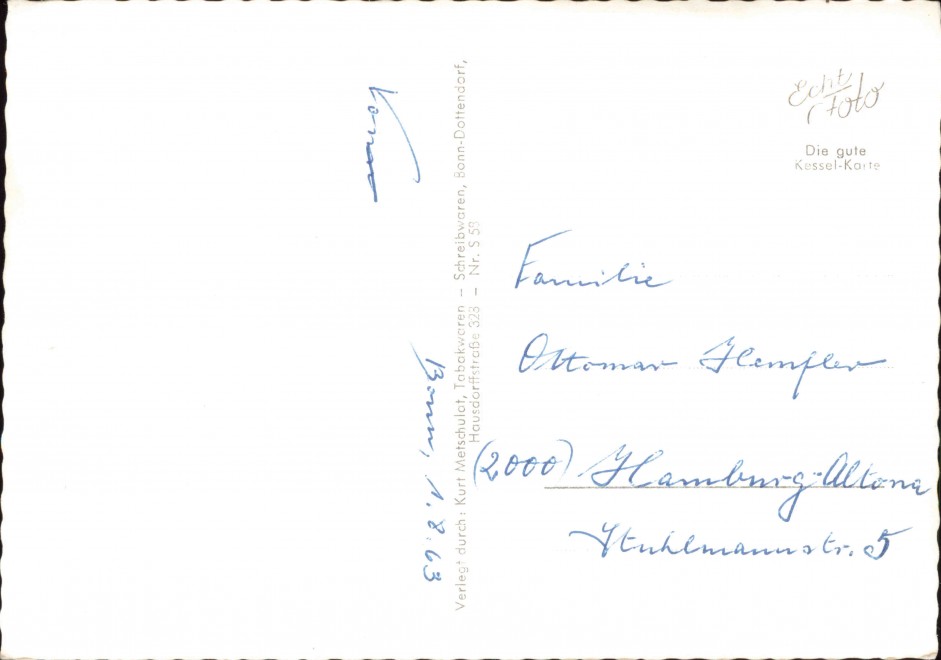 Bonn, 1.8.63
Verlegt durch: Kurt Metschulat, Tabakwaren – Schreibwaren, Bonn-Dottendorf,
Hausdorffstraße 323 – Nr. S 58
Echt Foto
Die gute
Kessel-Karte
Familie
Ottomar
(2000) Hamburg-Altona
Stuhlmannstr. 5